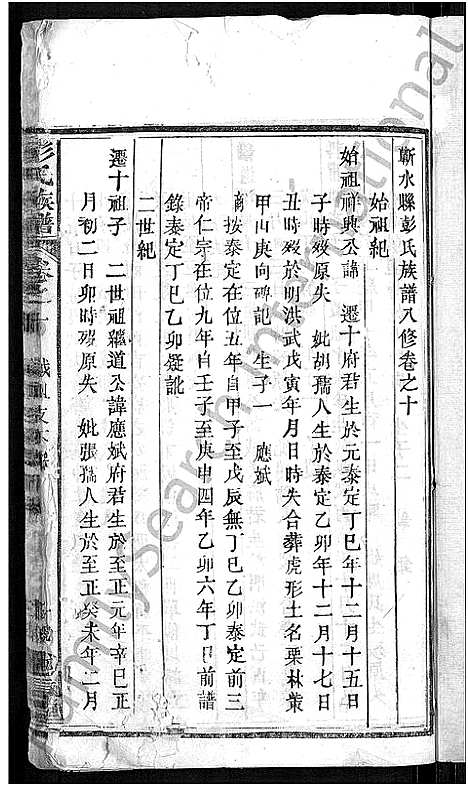 蘄水縣彭氏族譜八修卷之十
始祖紀
始祖祥興公諱 遷十府君生於元泰定丁巳年十二月十五日
子時歿原失 妣胡孺人生於泰定乙卯年十二月十七日
丑時歿於明洪武戊寅年月日時失合葬虎形土名栗林蕻
甲山庚向碑記生子一 應斌
按泰定在位五年自甲子至戊辰無丁巳乙卯泰定前三
帝仁宗在位九年自壬子至庚申四年乙卯六年丁巳前譜
錄泰定丁巳乙卯疑訛
二世紀
遷十祖子 二世祖繼道公諱應斌府君生於至正元年辛巳正
月初二日卯時歿原失 妣張孺人生於至正癸未年二月
彭氏族譜
FamilySearch International